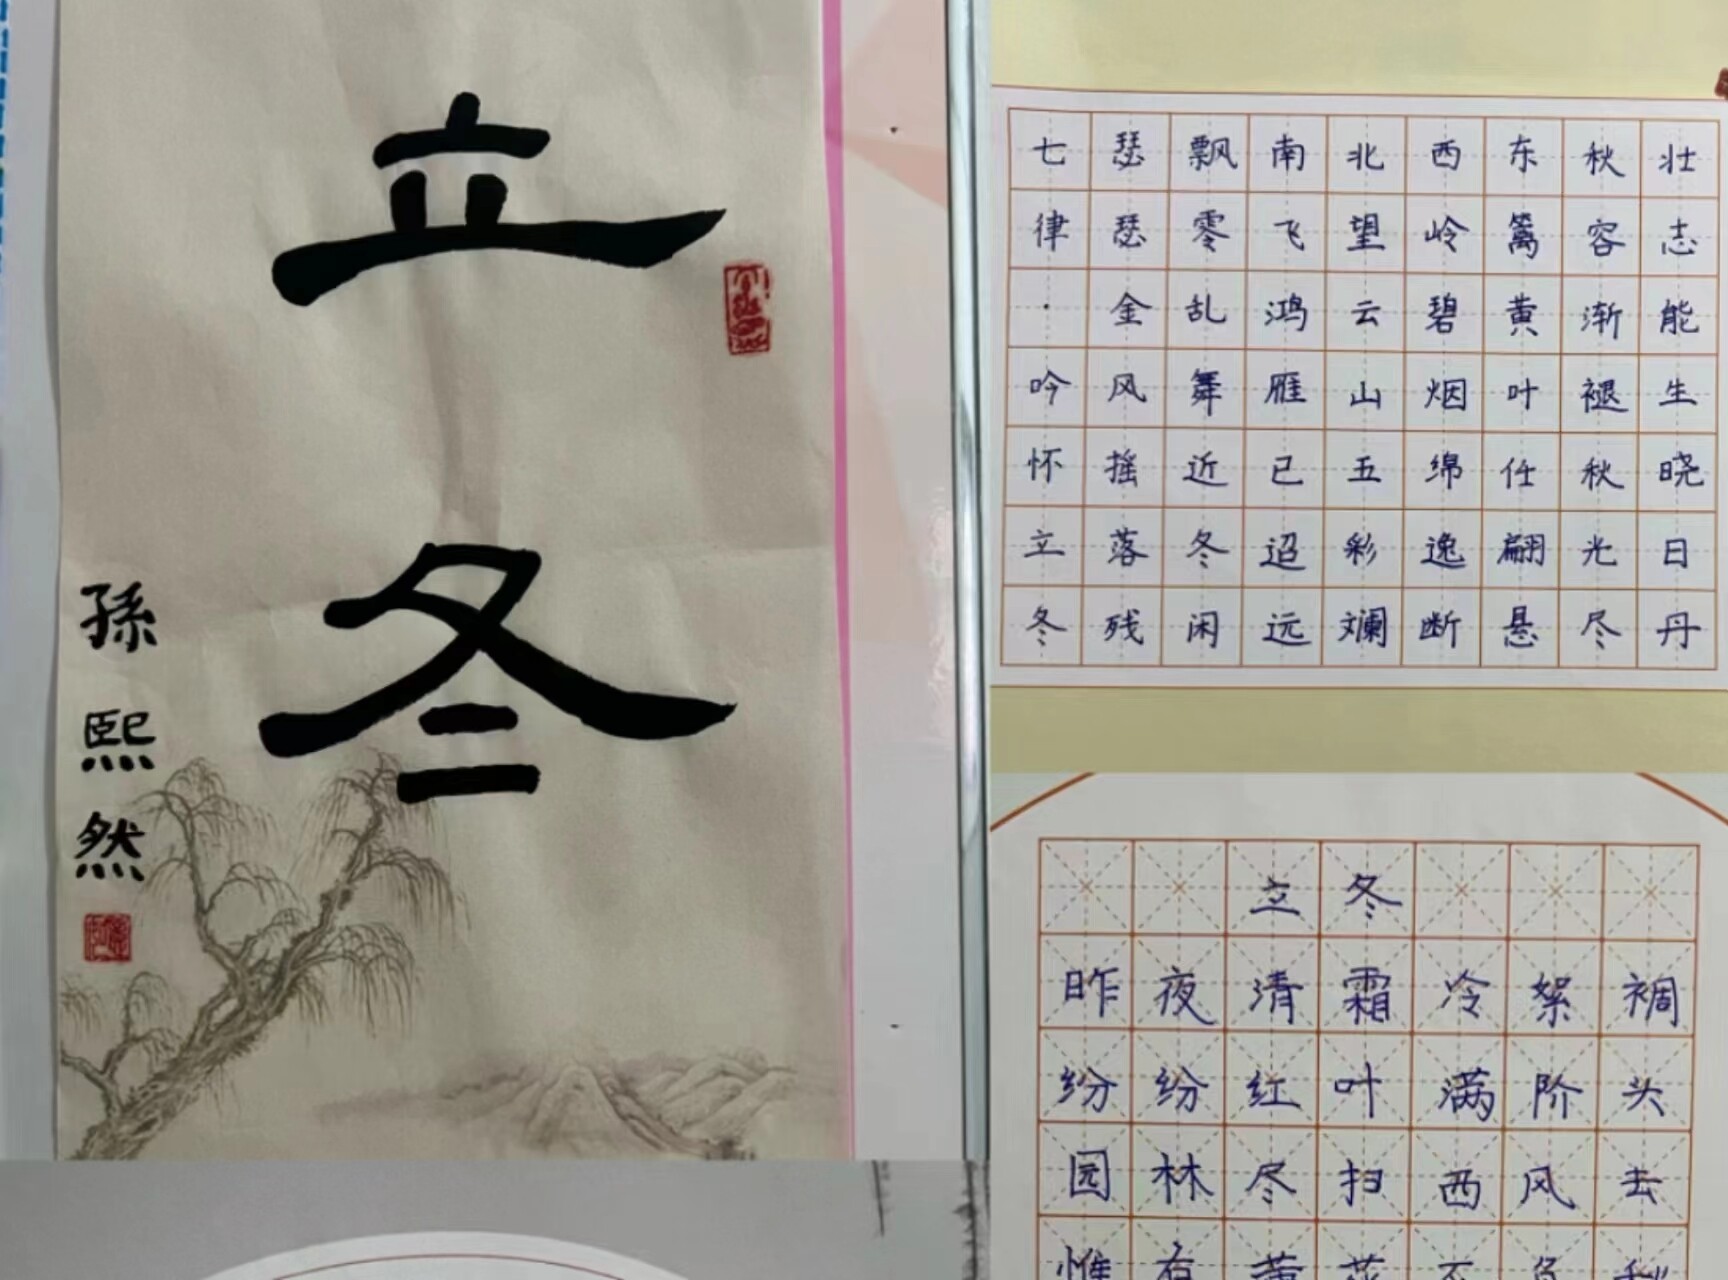 立冬
孫熙然
七律·吟怀立冬
瑟瑟金风摇落残
飘零乱舞近冬闲
南飞鸿雁已迢远
北望云山五彩斓
西岭碧烟绵逸断
东篱黄叶任翩悬
秋容渐褪秋光尽
壮志能生晓日丹
立冬
昨夜清霜冷絮裯
纷纷红叶满阶头
园林尽扫西风去
惟有黄花不负秋